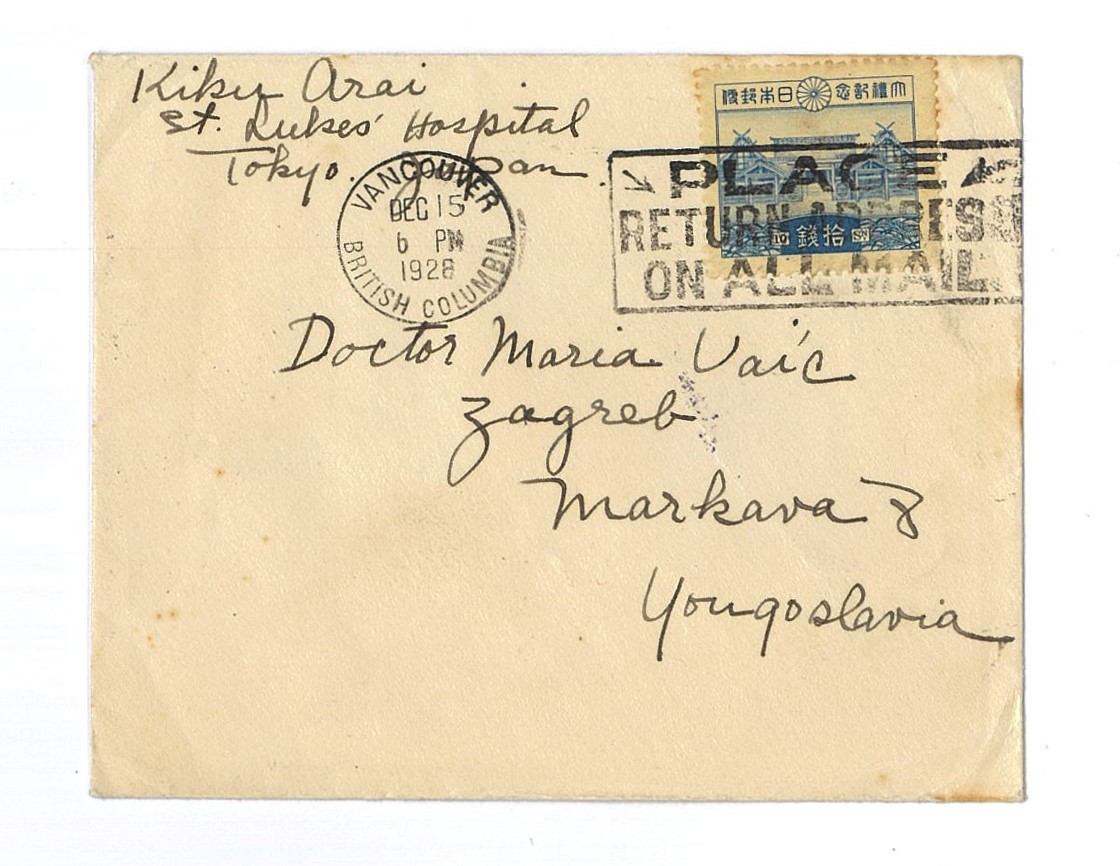 Kiku Arai
St. Lukes' Hospital
Tokyo. Japan.
VANCOUVER
DEC 15
6 PM
1928
BRITISH COLUMBIA
便郵本日 念記禮大
錢拾
PLACE
RETURN ADDRESS
ON ALL MAIL.
Doctor Maria Vaíc
Zagreb
Markava 8
Yougoslavia